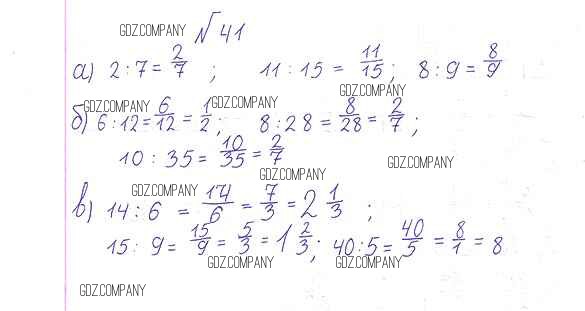 GDZ.COMPANY √ 41
а) 2 : 7 = 2/7 ; 11 : 15 = 11/15 ; 8 : 9 = 8/9
GDZ.COMPANY
б) 6 : 12 = 6/12 = 1/2 ; GDZ.COMPANY 8 : 28 = 8/28 = 2/7 ;
GDZ.COMPANY
10 : 35 = 10/35 = 2/7 GDZ.COMPANY
GDZ.COMPANY
GDZ.COMPANY
в) 14 : 6 = 14/6 = 7/3 = 2 1/3 ;
15 : 9 = 15/9 = 5/3 = 1 2/3 ; 40 : 5 = 40/5 = 8/1 = 8
GDZ.COMPANY GDZ.COMPANY
GDZ.COMPANY